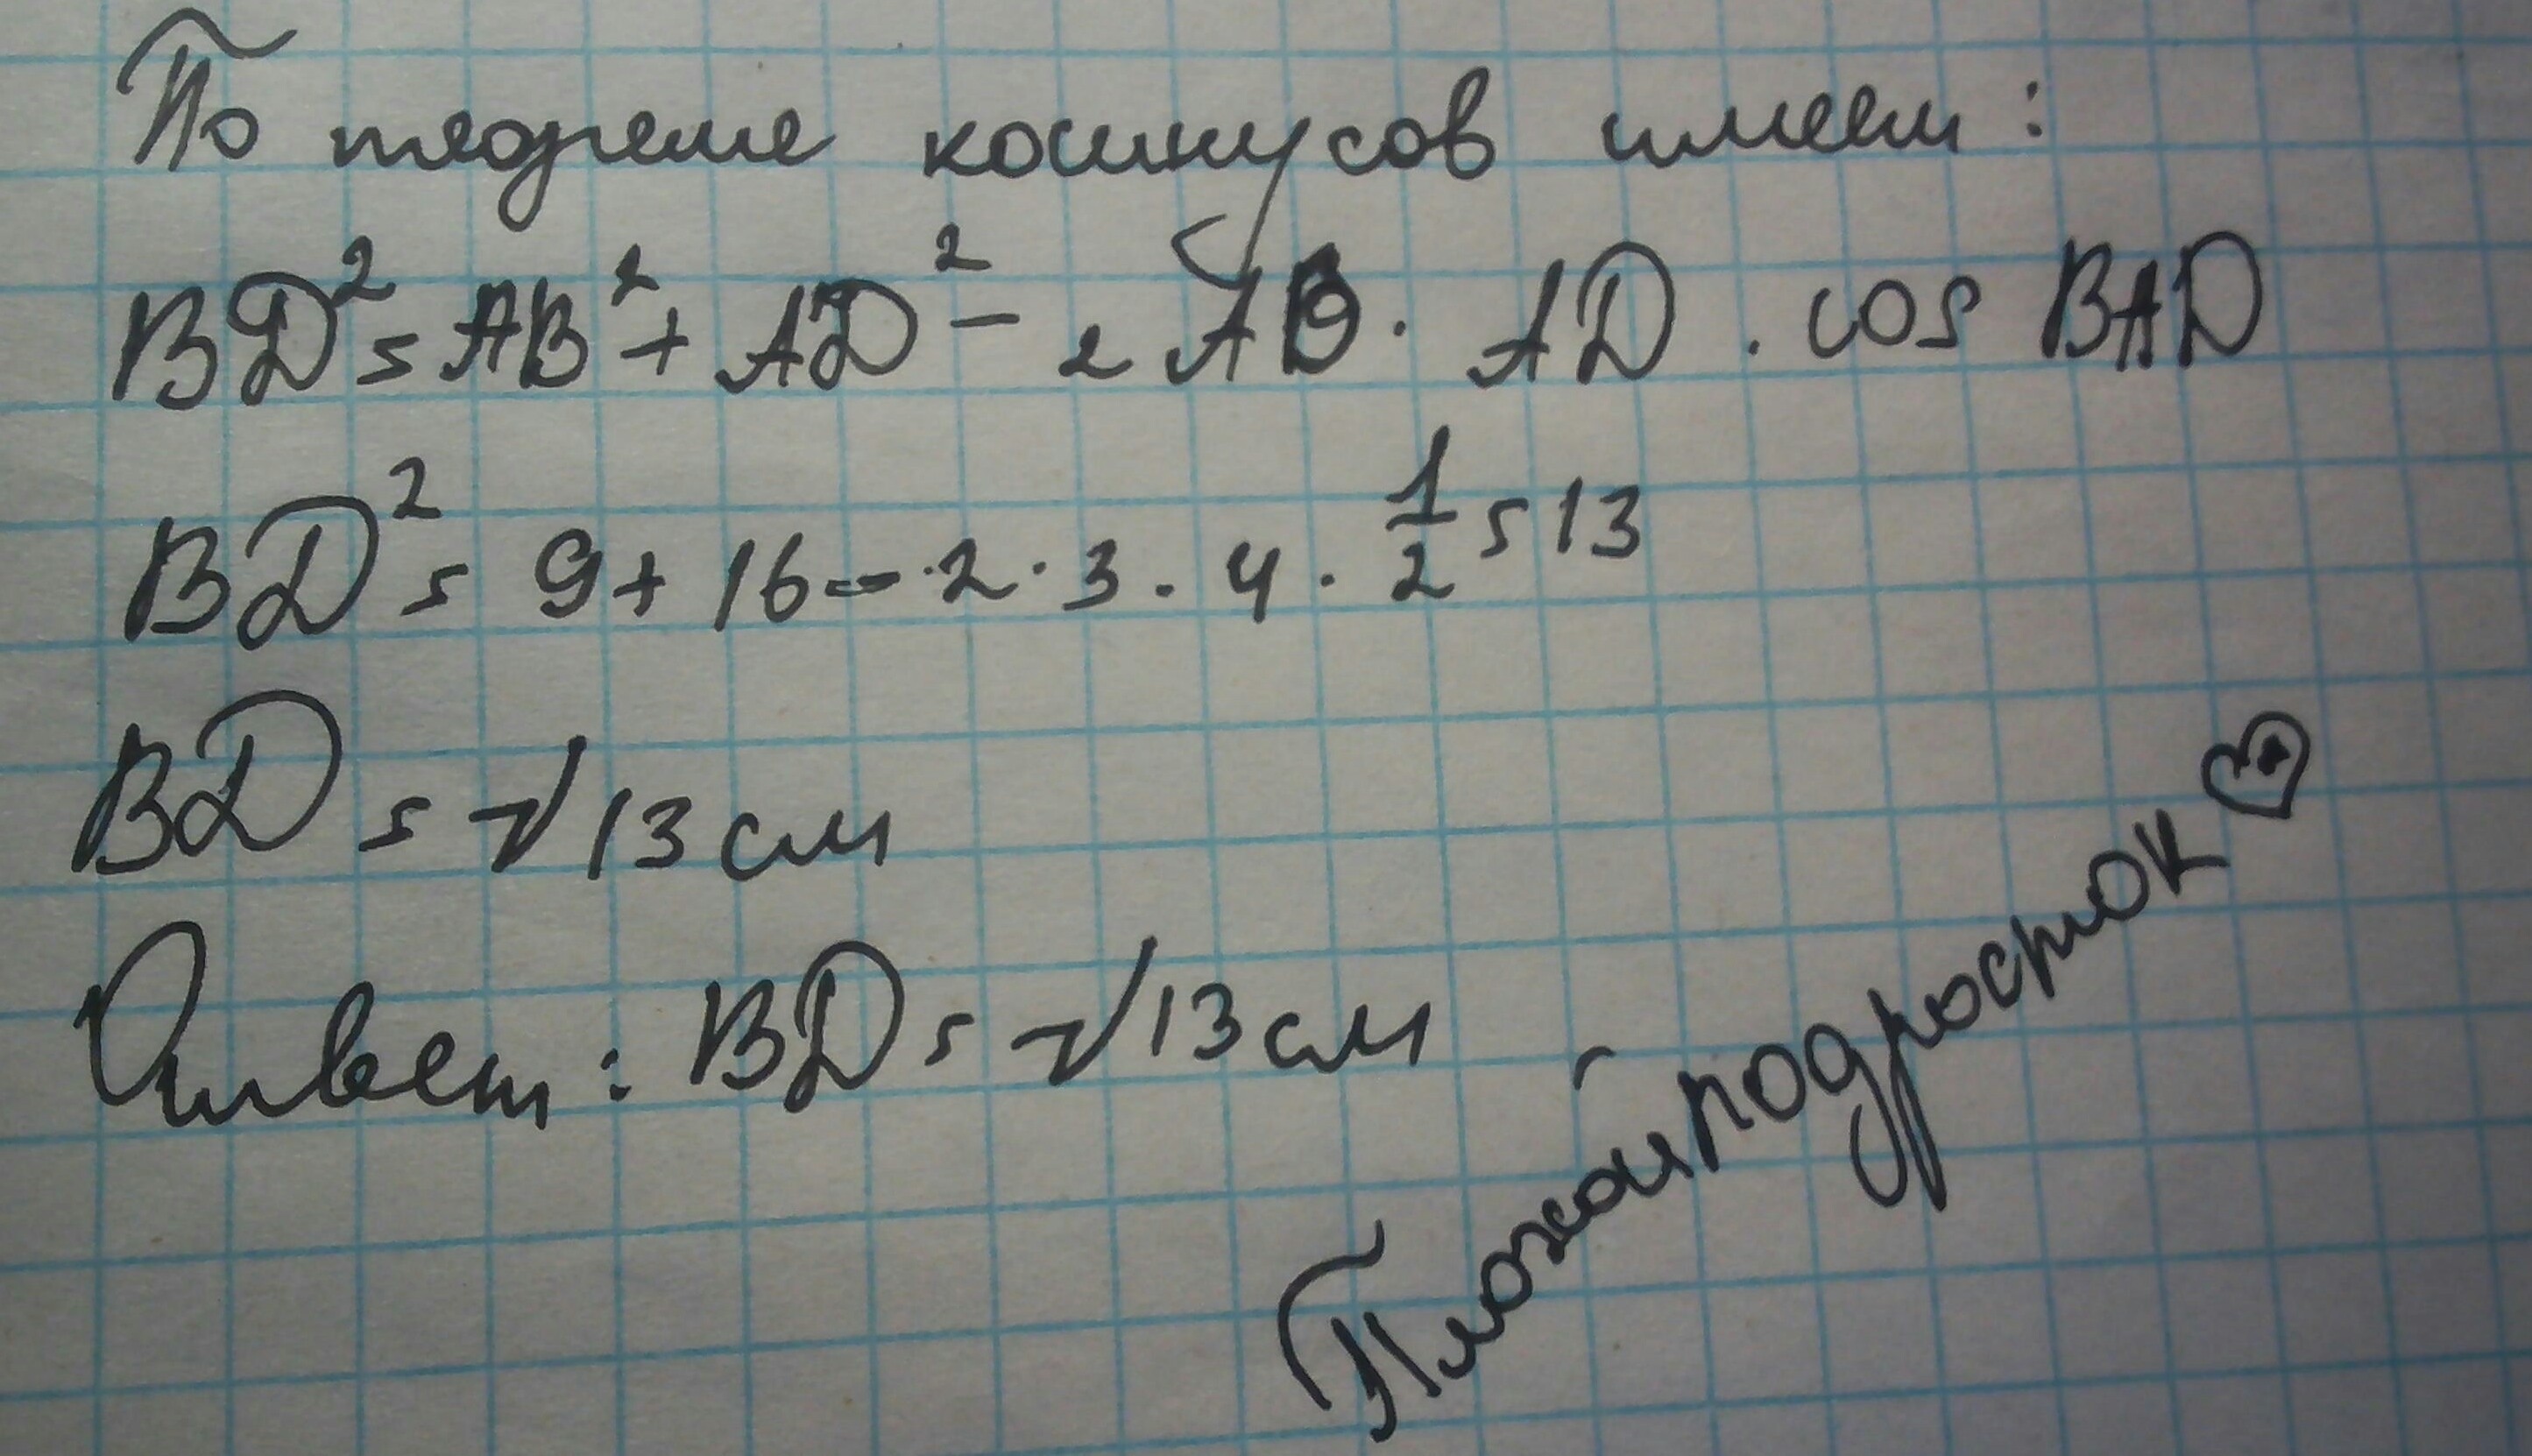 По теореме косинусов имеем:
BD² = AB² + AD² - 2 AB · AD · cos BAD
BD² = 9 + 16 - · 2 · 3 · 4 · 1/2 = 13
BD = √13 см
Ответ: BD = √13 см
Плохойподросток